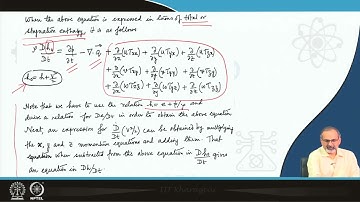 When the above equation is expressed in terms of total or
stagnation enthalpy it is as follows
ρ Dh₀/Dt = ∂p/∂t − ∇·q + ∂/∂x(uτxx) + ∂/∂y(uτyx) + ∂/∂z(uτzx)
+ ∂/∂x(vτxy) + ∂/∂y(vτyy) + ∂/∂z(vτzy)
h₀ = h + V²/2
+ ∂/∂x(wτxz) + ∂/∂y(wτyz) + ∂/∂z(wτzz)
Note that we have to use the relation h = e + p/ρ and
derive a relation for De/Dt in order to obtain the above equation
Next an expression for D/Dt (V²/2) can be obtained by multiplying
the x, y and z momentum equations and adding them. That
equation when subtracted from the above equation in Dh₀/Dt gives
an equation in Dh/Dt.
NPTEL